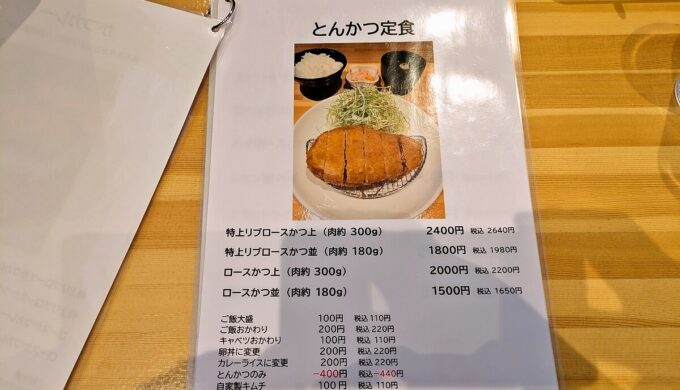 とんかつ定食
特上リブロースかつ上（肉約 300g） 2400円 税込 2640円
特上リブロースかつ並（肉約 180g） 1800円 税込 1980円
ロースかつ上（肉約 300g） 2000円 税込 2200円
ロースかつ並（肉約 180g） 1500円 税込 1650円
ご飯大盛 100円 税込 110円
ご飯おかわり 200円 税込 220円
キャベツおかわり 100円 税込 110円
卵丼に変更 200円 税込 220円
カレーライスに変更 200円 税込 220円
とんかつのみ −400円 税込−440円
自家製キムチ 100円 税込 110円